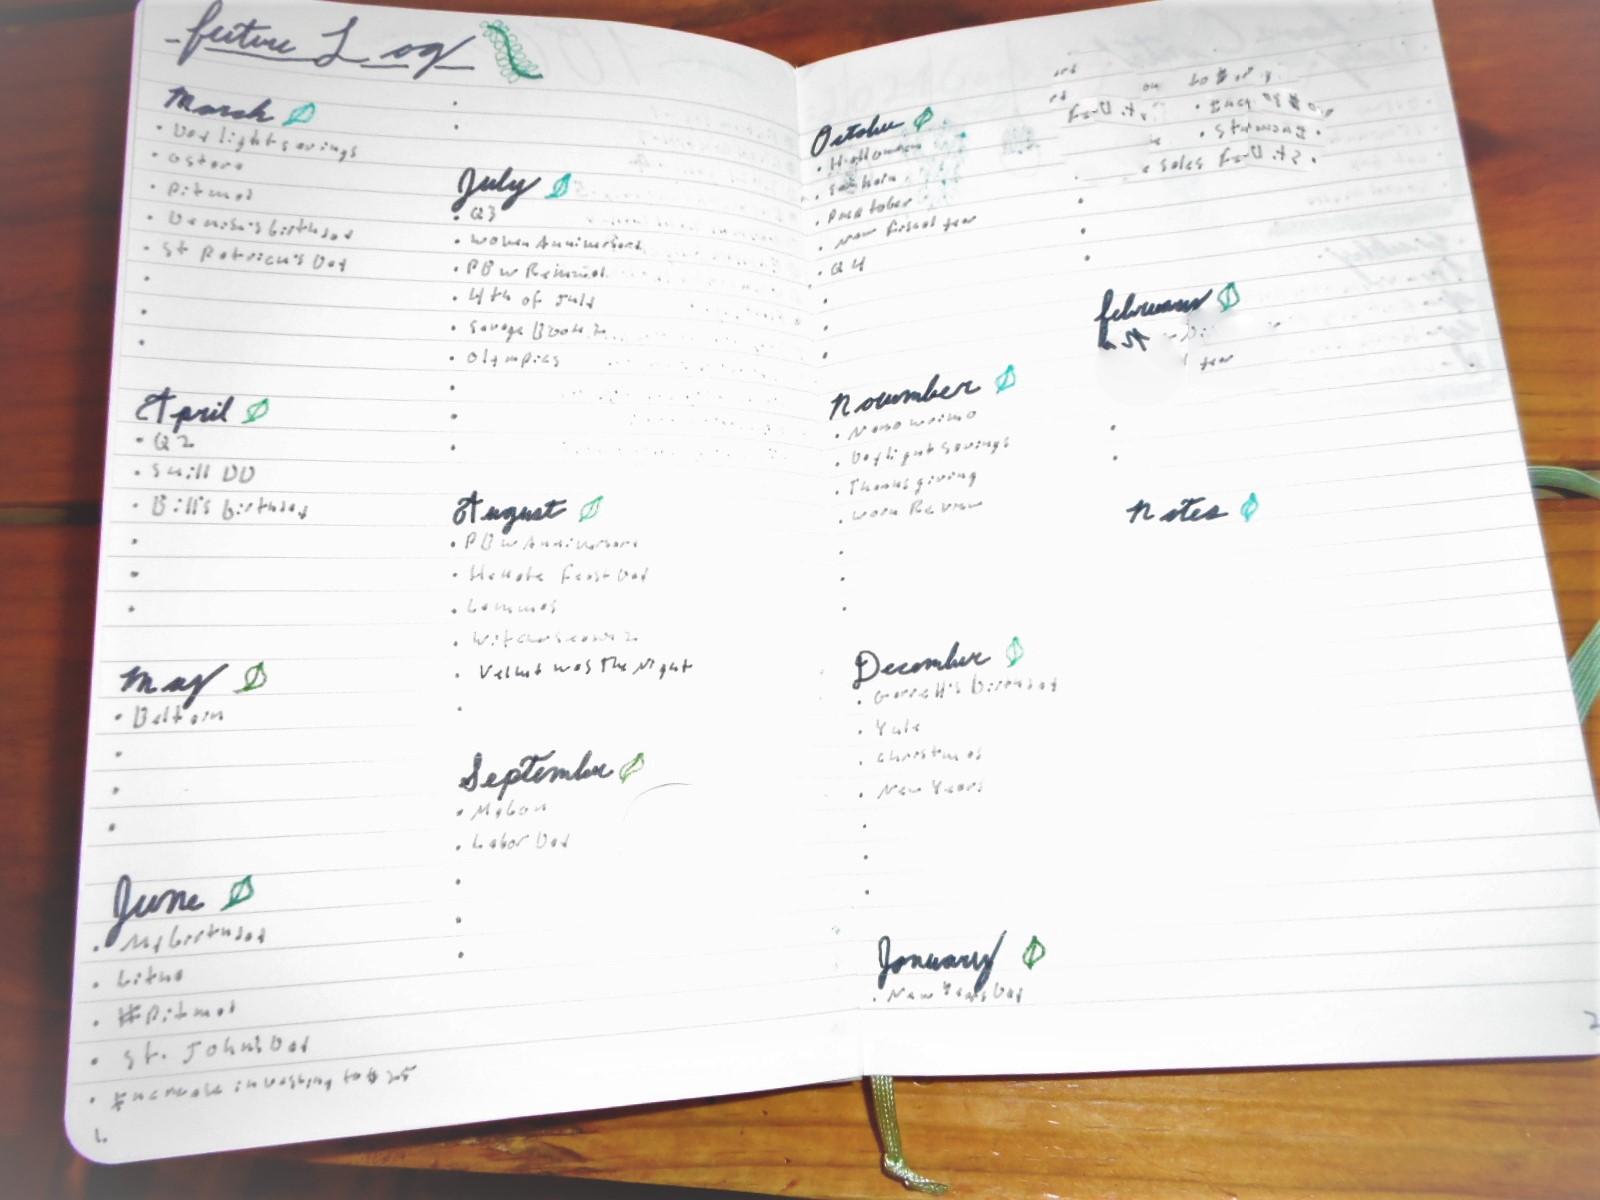 Future Log
March
Daylight savings
Ostara
Pitmad
Denise's birthday
St Patrick's Day
April
Q2
Skill DD
Bill's birthday
May
Beltain
June
My birthday
Litha
#Pitmad
St. John's Day
Increase investing to $25
1.
July
Q3
Women Anniversary
PBW Renewal
4th of July
Savage Bloom 2
Olympics
August
PBW Anniversary
Hekate Feast Day
Lammas
Witches 2
Velvet was the Night
September
Mabon
Labor Day
October
Halloween
Samhain
Preptober
New Fiscal Year
Q4
November
Nanowrimo
Daylight Savings
Thanksgiving
Work Review
December
Garrett's Birthday
Yule
Christmas
New Years
January
New Years Day
February
Year
Notes
2